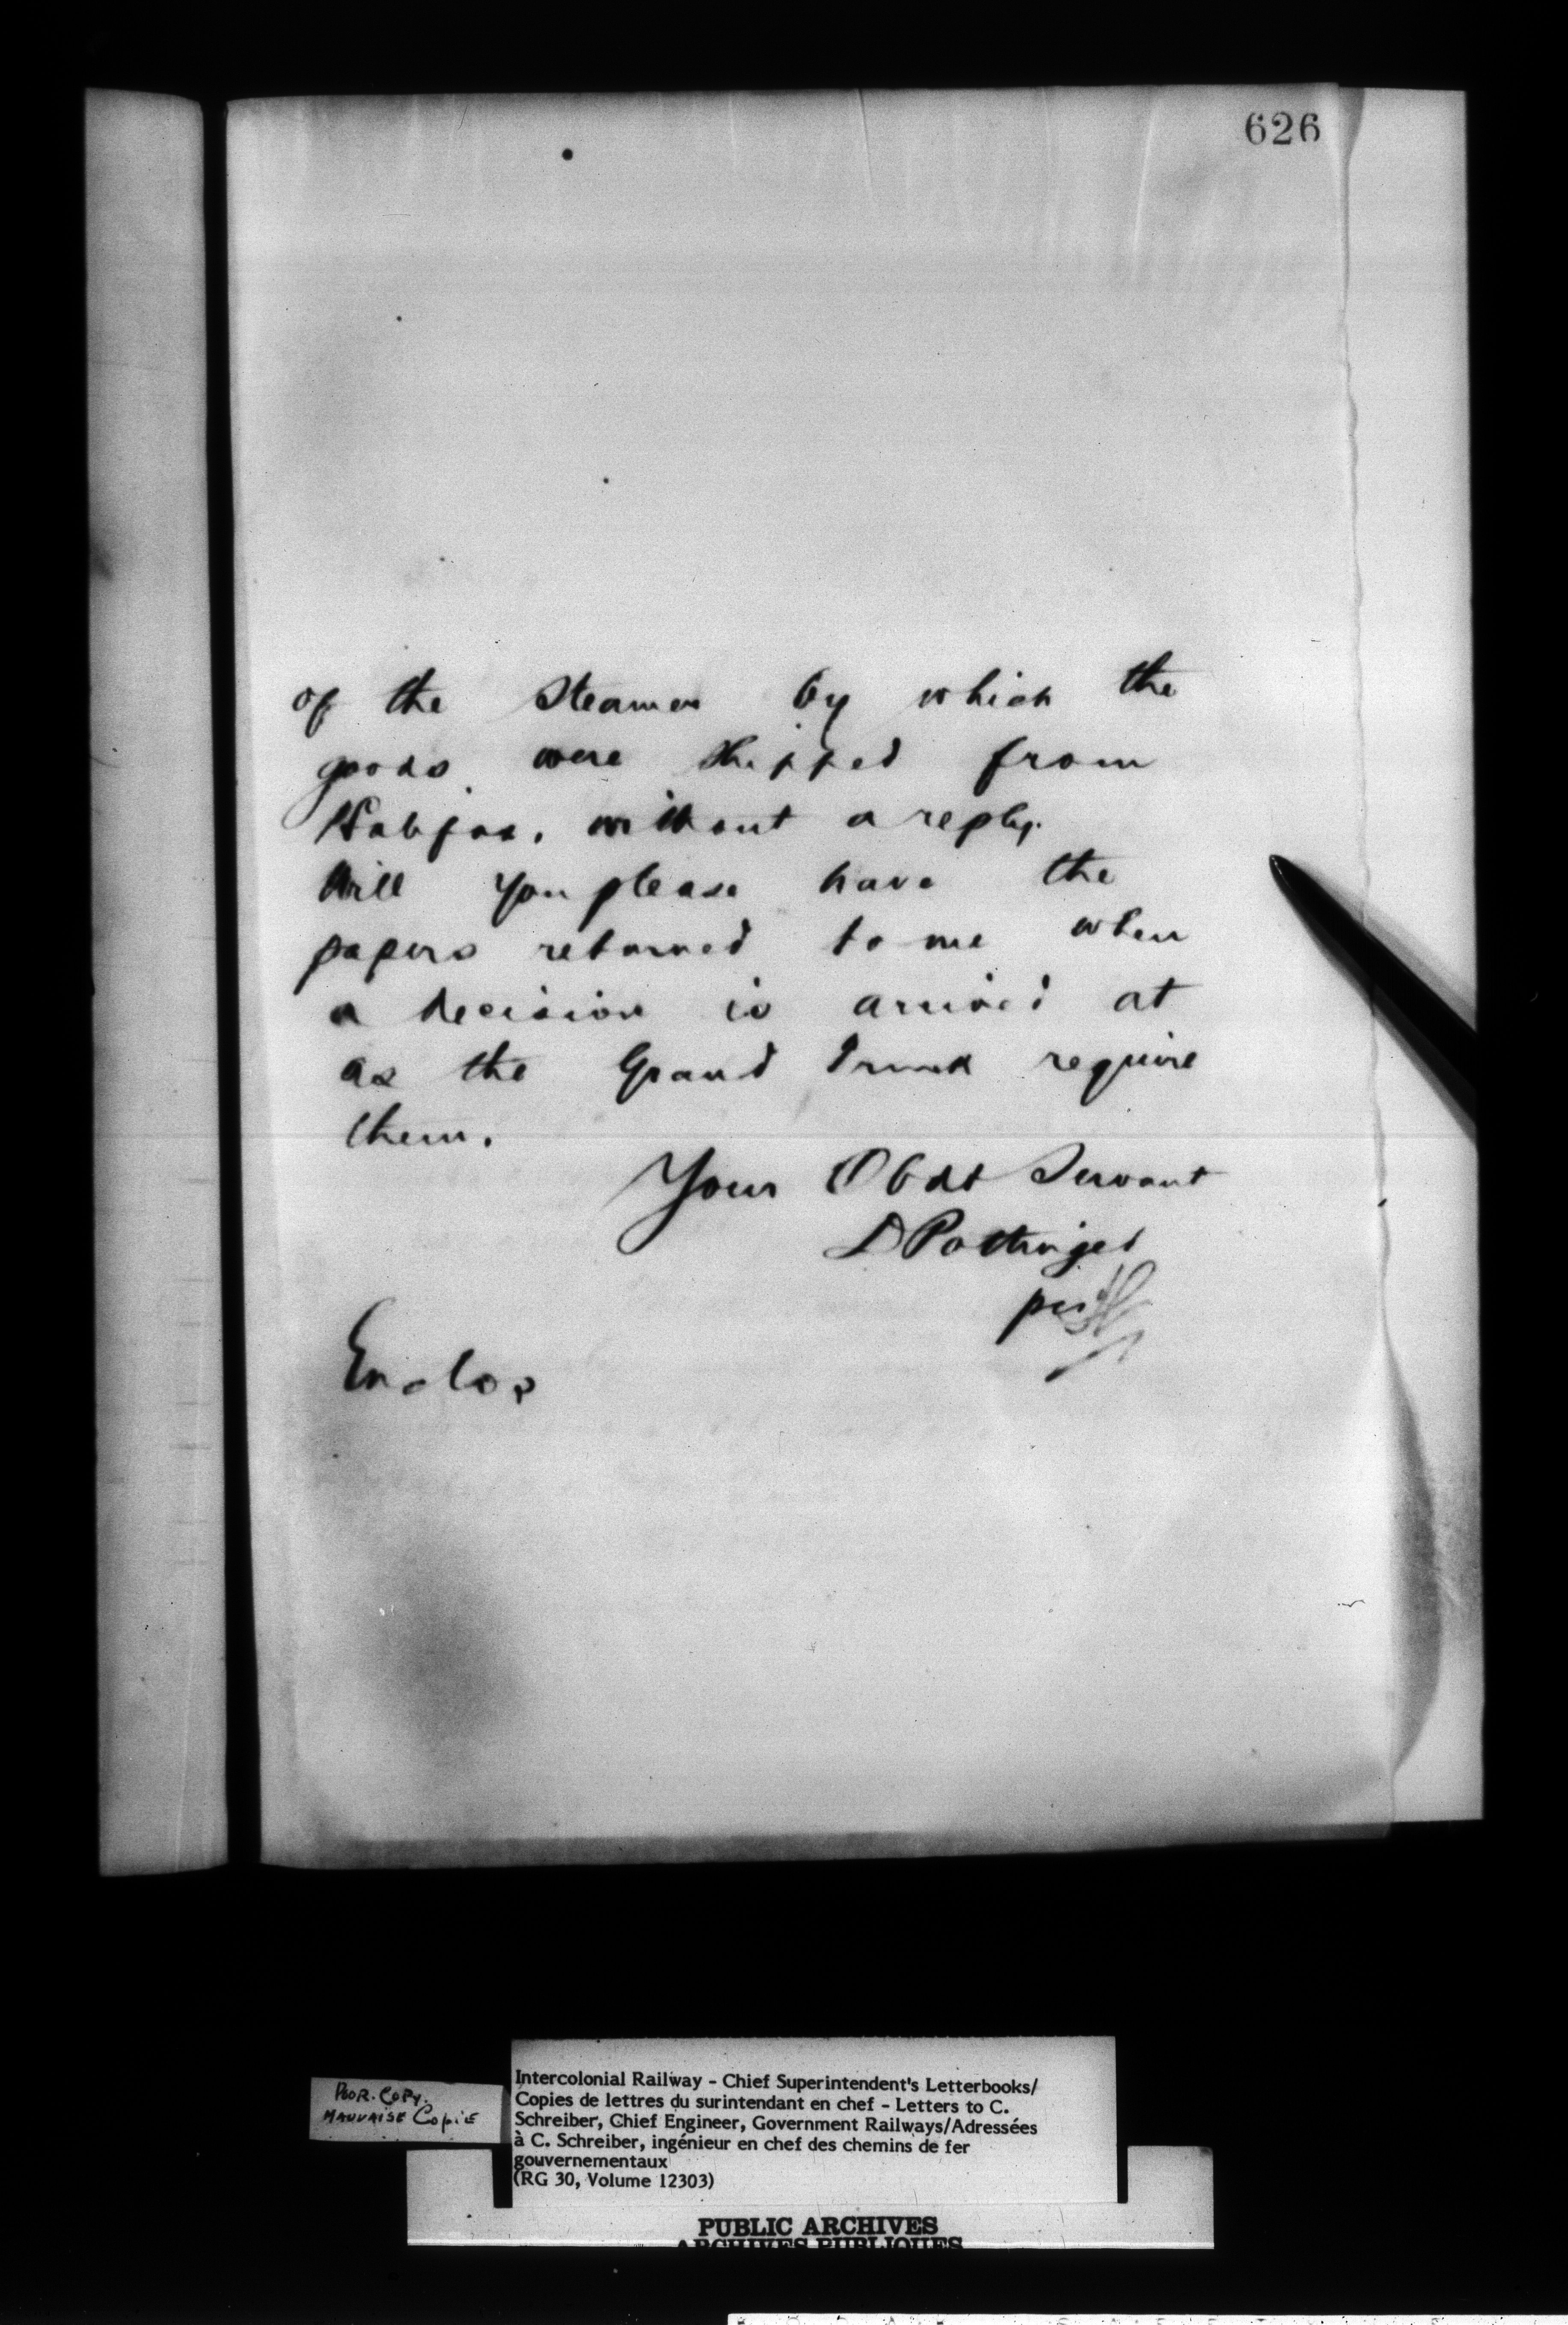 626
of the Steamer by which the
goods were shipped from
Halifax, without a reply.
Will you please have the
papers returned to me when
a decision is arrived at
as the Grand Trunk require
them.
Your Obdt Servant
D Pottinger
per
Enclos
POOR. COPY.
MAUVAISE COPIE
Intercolonial Railway - Chief Superintendent's Letterbooks/
Copies de lettres du surintendant en chef - Letters to C.
Schreiber, Chief Engineer, Government Railways/Adressées
à C. Schreiber, ingénieur en chef des chemins de fer
gouvernementaux
(RG 30, Volume 12303)
PUBLIC ARCHIVES
ARCHIVES PUBLIQUES